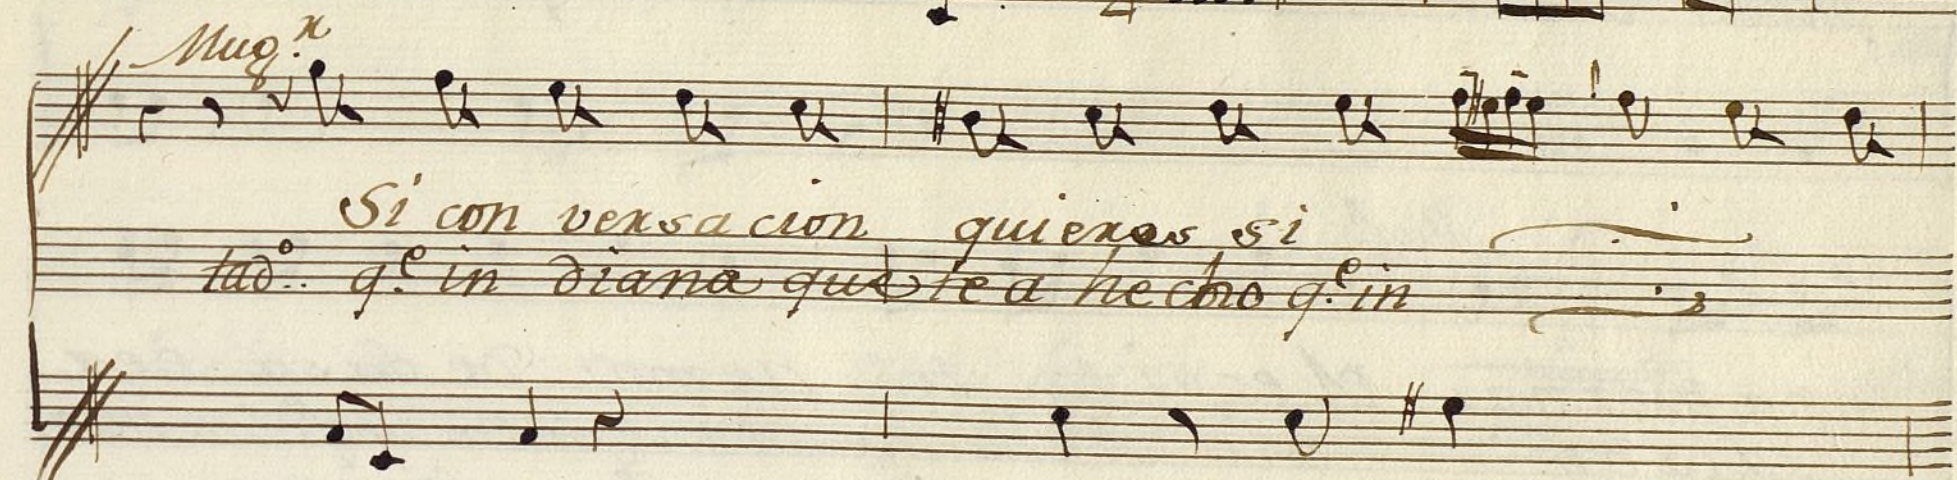 Mug.r
Si con versa cion quieres si
tad.o q.e in diana que te a hecho q.e in